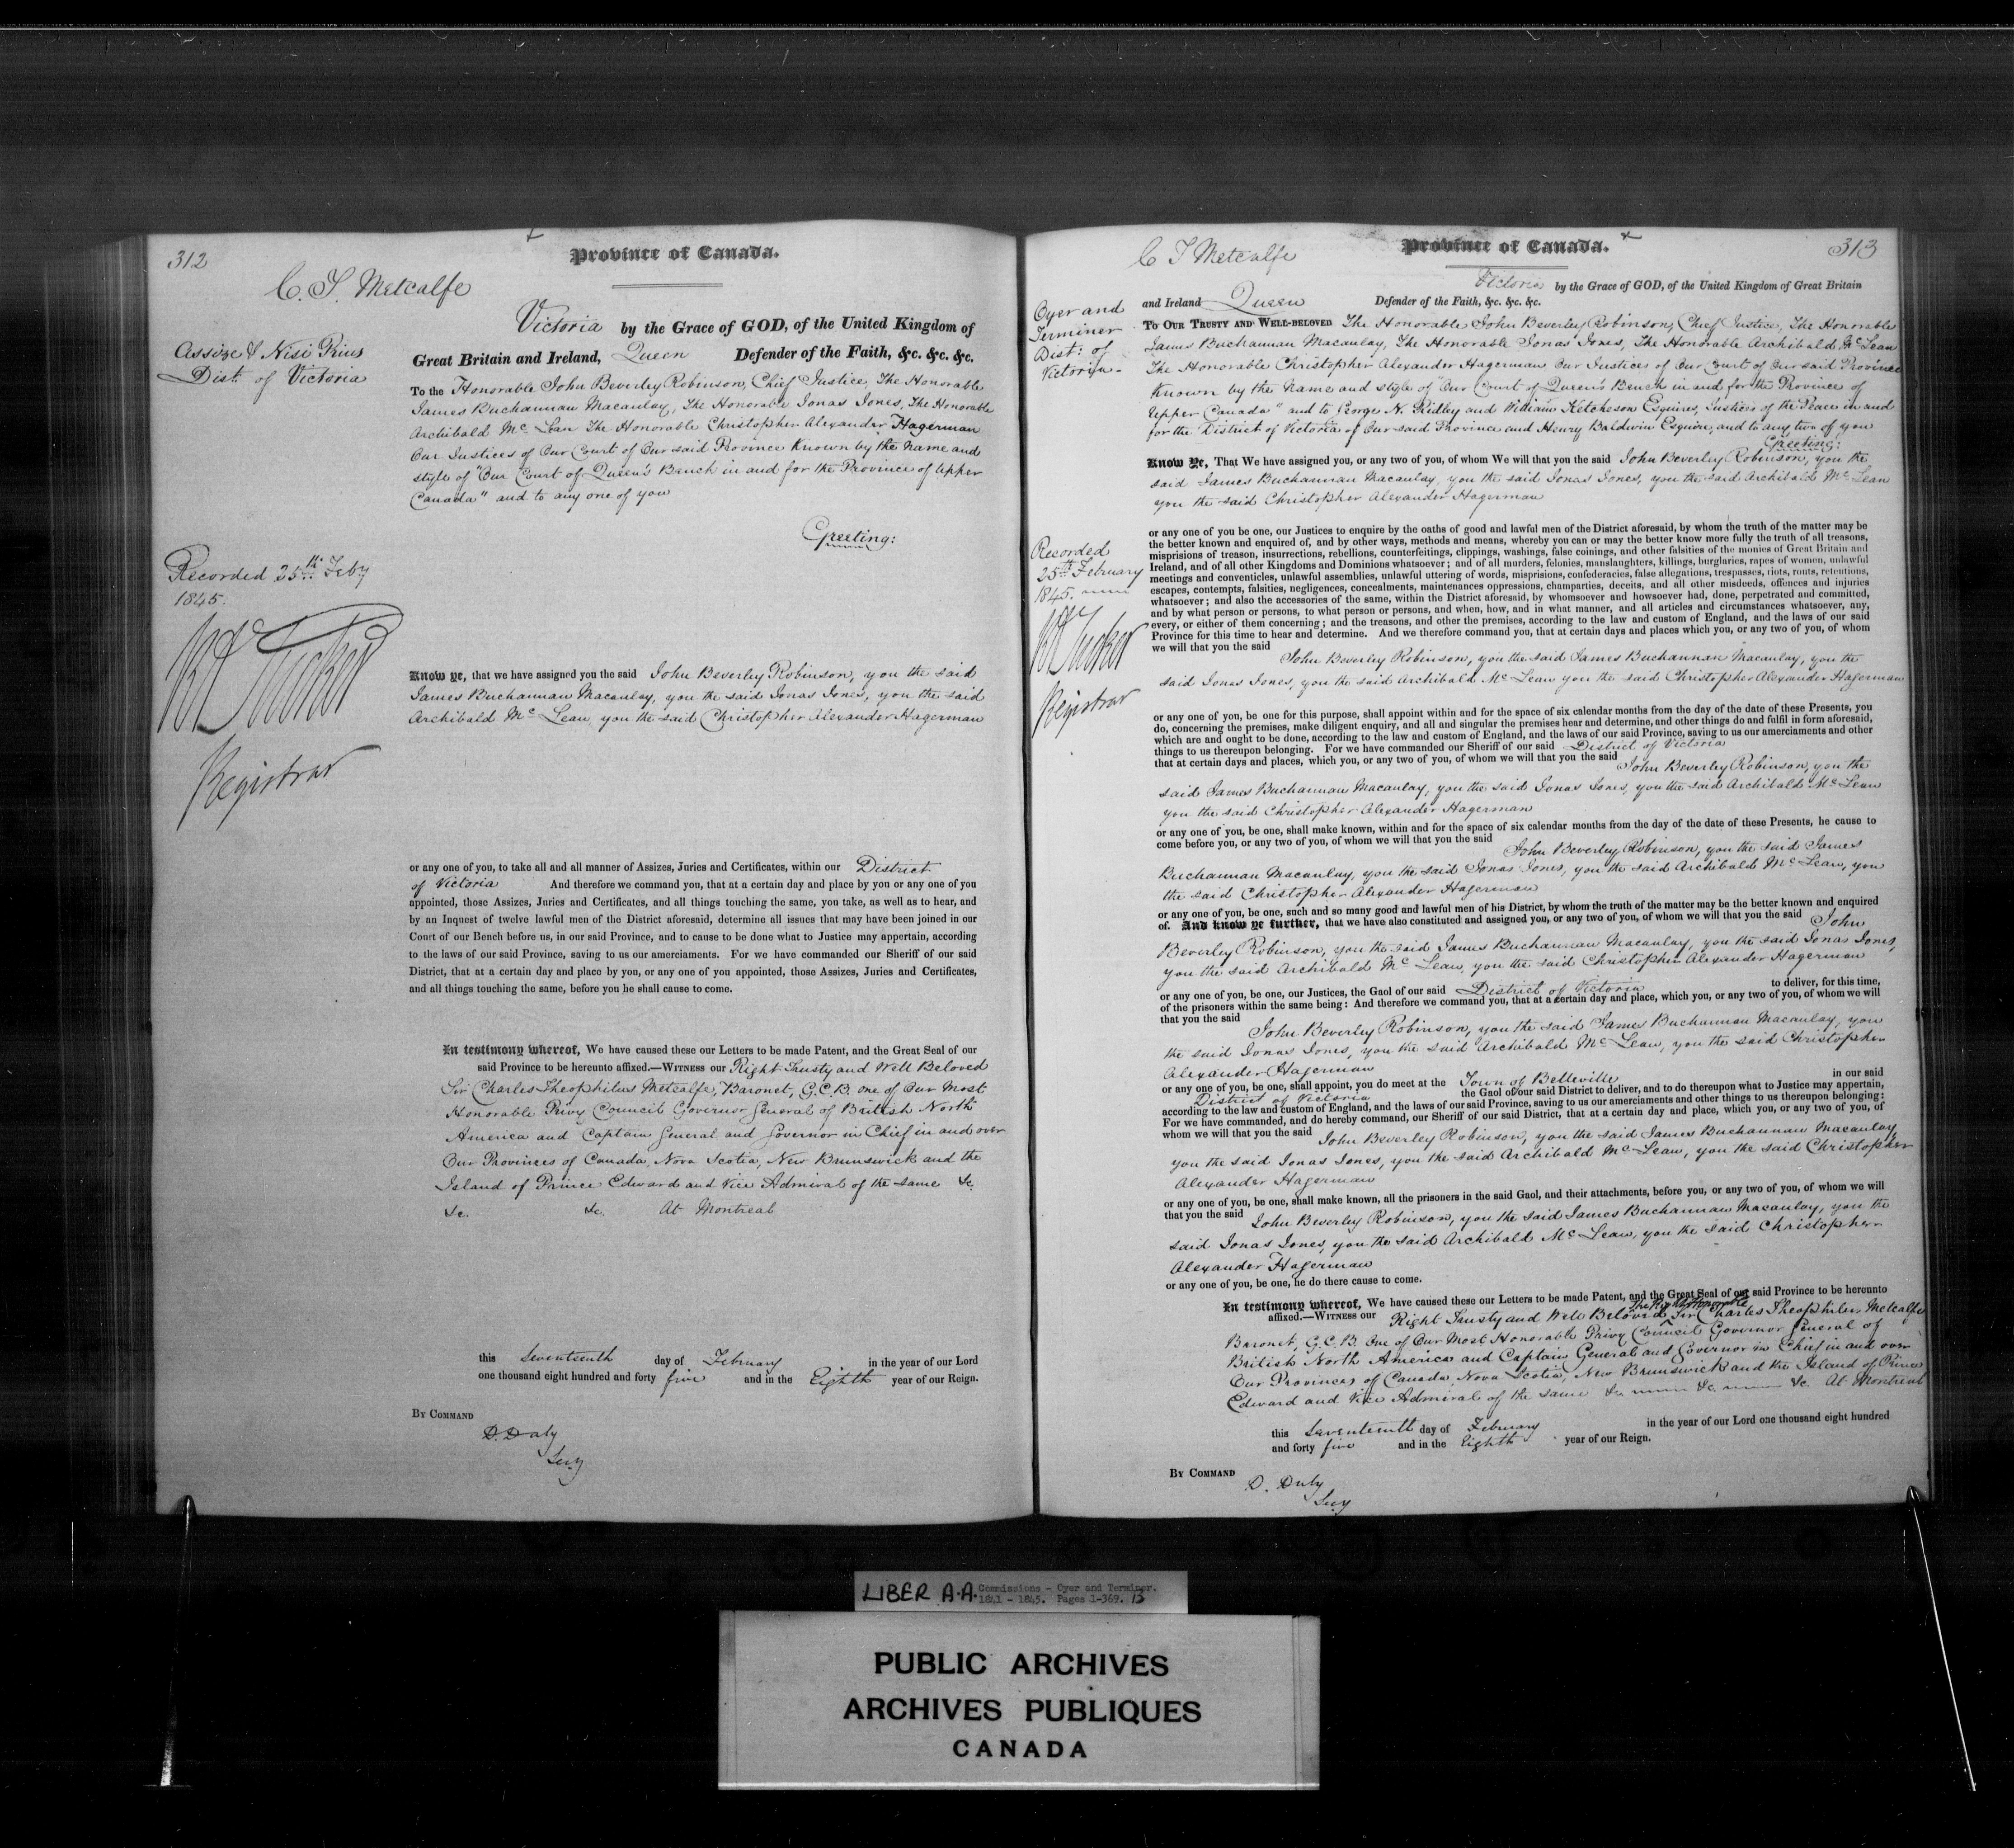 312
Province of Canada.
C. T. Metcalfe
Victoria by the Grace of GOD, of the United Kingdom of
Great Britain and Ireland, Queen Defender of the Faith, &c. &c. &c.
Assize & Nisi Prius
Dist. of Victoria
To the Honorable John Beverley Robinson, Chief Justice, The Honorable
James Buchannan Macaulay, The Honorable Jonas Jones, The Honorable
Archibald Mc Lean The Honorable Christopher Alexander Hagerman
Our Justices of Our Court of Our said Province Known by the Name and
style of "Our Court of Queen's Bench in and for the Province of Upper
Canada" and to any one of you
Greeting:
Recorded 25th. Feby
1845.
Tucker
Registrar
Know ye, that we have assigned you the said John Beverley Robinson, you the said
James Buchannan Macaulay, you the said Jonas Jones, you the said
Archibald Mc Lean, you the said Christopher Alexander Hagerman
or any one of you, to take all and all manner of Assizes, Juries and Certificates, within our District
of Victoria And therefore we command you, that at a certain day and place by you or any one of you
appointed, those Assizes, Juries and Certificates, and all things touching the same, you take, as well as to hear, and
by an Inquest of twelve lawful men of the District aforesaid, determine all issues that may have been joined in our
Court of our Bench before us, in our said Province, and to cause to be done what to Justice may appertain, according
to the laws of our said Province, saving to us our amerciaments. For we have commanded our Sheriff of our said
District, that at a certain day and place by you, or any one of you appointed, those Assizes, Juries and Certificates,
and all things touching the same, before you he shall cause to come.
In testimony whereof, We have caused these our Letters to be made Patent, and the Great Seal of our
said Province to be hereunto affixed.—WITNESS our Right Trusty and Well Beloved
Sir Charles Theophilus Metcalfe, Baronet, G.C.B. One of Our Most
Honorable Privy Council Governor General of British North
America and Captain General and Governor in Chief in and over
Our Provinces of Canada, Nova Scotia, New Brunswick and the
Island of Prince Edward and Vice Admiral of the same &c.
&c. &c. At Montreal
this Seventeenth day of February in the year of our Lord
one thousand eight hundred and forty five and in the Eighth year of our Reign.
BY COMMAND
D. Daly
Secy
313
Province of Canada.
C T Metcalfe
Victoria by the Grace of GOD, of the United Kingdom of Great Britain
and Ireland Queen Defender of the Faith, &c. &c. &c.
Oyer and
Terminer
Dist: of
Victoria-
TO OUR TRUSTY AND WELL-BELOVED The Honorable John Beverley Robinson, Chief Justice, The Honorable
James Buchannan Macaulay, The Honorable Jonas Jones, The Honorable Archibald Mc Lean
The Honorable Christopher Alexander Hagerman Our Justices of Our Court of Our said Province
Known by the Name and style of "Our Court of Queen's Bench in and for the Province of
Upper Canada" and to George N. Ridley and William Ketcheson Esquires, Justices of the Peace in and
for the District of Victoria of Our said Province and Henry Baldwin Esquire, and to any two of you
Greeting:
Know Ye, That We have assigned you, or any two of you, of whom We will that you the said John Beverley Robinson, you the
said James Buchannan Macaulay, you the said Jonas Jones, you the said Archibald Mc Lean
you the said Christopher Alexander Hagerman
or any one of you be one, our Justices to enquire by the oaths of good and lawful men of the District aforesaid, by whom the truth of the matter may be
the better known and enquired of, and by other ways, methods and means, whereby you can or may the better know more fully the truth of all treasons,
misprisions of treason, insurrections, rebellions, counterfeitings, clippings, washings, false coinings, and other falsities of the monies of Great Britain and
Ireland, and of all other Kingdoms and Dominions whatsoever; and of all murders, felonies, manslaughters, killings, burglaries, rapes of women, unlawful
meetings and conventicles, unlawful assemblies, unlawful uttering of words, misprisions, confederacies, false allegations, trespasses, riots, routs, retentions,
escapes, contempts, falsities, negligences, concealments, maintenances oppressions, champarties, deceits, and all other misdeeds, offences and injuries
whatsoever; and also the accessories of the same, within the District aforesaid, by whomsoever and howsoever had, done, perpetrated and committed,
and by what person or persons, to what person or persons, and when, how, and in what manner, and all articles and circumstances whatsoever, any,
every, or either of them concerning; and the treasons, and other the premises, according to the law and custom of England, and the laws of our said
Province for this time to hear and determine. And we therefore command you, that at certain days and places which you, or any two of you, of whom
we will that you the said
John Beverley Robinson, you the said James Buchannan Macaulay, you the
said Jonas Jones, you the said Archibald Mc Lean you the said Christopher Alexander Hagerman
Recorded
25th February
1845.
Tucker
Registrar
or any one of you, be one for this purpose, shall appoint within and for the space of six calendar months from the day of the date of these Presents, you
do, concerning the premises, make diligent enquiry, and all and singular the premises hear and determine, and other things do and fulfil in form aforesaid,
which are and ought to be done, according to the law and custom of England, and the laws of our said Province, saving to us our amerciaments and other
things to us thereupon belonging. For we have commanded our Sheriff of our said District of Victoria
that at certain days and places, which you, or any two of you, of whom we will that you the said John Beverley Robinson, you the
said James Buchannan Macaulay, you the said Jonas Jones, you the said Archibald Mc Lean
you the said Christopher Alexander Hagerman
or any one of you, be one, shall make known, within and for the space of six calendar months from the day of the date of these Presents, he cause to
come before you, or any two of you, of whom we will that you the said John Beverley Robinson, you the said James
Buchannan Macaulay, you the said Jonas Jones, you the said Archibald Mc Lean, you
the said Christopher Alexander Hagerman
or any one of you, be one, such and so many good and lawful men of his District, by whom the truth of the matter may be the better known and enquired
of. And know ye further, that we have also constituted and assigned you, or any two of you, of whom we will that you the said John
Beverley Robinson, you the said James Buchannan Macaulay, you the said Jonas Jones,
you the said Archibald Mc Lean, you the said Christopher Alexander Hagerman
or any one of you, be one, our Justices, the Gaol of our said District of Victoria to deliver, for this time,
of the prisoners within the same being: And therefore we command you, that at a certain day and place, which you, or any two of you, of whom we will
that you the said John Beverley Robinson, you the said James Buchannan Macaulay, you
the said Jonas Jones, you the said Archibald Mc Lean, you the said Christopher
Alexander Hagerman
or any one of you, be one, shall appoint, you do meet at the Town of Belleville in our said
District of Victoria the Gaol of our said District to deliver, and to do thereupon what to Justice may appertain,
according to the law and custom of England, and the laws of our said Province, saving to us our amerciaments and other things to us thereupon belonging:
For we have commanded, and do hereby command, our Sheriff of our said District, that at a certain day and place, which you, or any two of you, of
whom we will that you the said John Beverley Robinson, you the said James Buchannan Macaulay,
you the said Jonas Jones, you the said Archibald Mc Lean, you the said Christopher
Alexander Hagerman
or any one of you, be one, shall make known, all the prisoners in the said Gaol, and their attachments, before you, or any two of you, of whom we will
that you the said John Beverley Robinson, you the said James Buchannan Macaulay, you the
said Jonas Jones, you the said Archibald Mc Lean, you the said Christopher
Alexander Hagerman
or any one of you, be one, he do there cause to come.
In testimony whereof, We have caused these our Letters to be made Patent, and the Great Seal of our said Province to be hereunto
The Right Honorable
affixed.—WITNESS our Right Trusty and Well Beloved Sir Charles Theophilus Metcalfe
Baronet, G.C.B. One of Our Most Honorable Privy Council Governor General of
British North America and Captain General and Governor in Chief in and over
Our Provinces of Canada, Nova Scotia, New Brunswick and the Island of Prince
Edward and Vice Admiral of the same &c. &c. &c. At Montreal
this Seventeenth day of February in the year of our Lord one thousand eight hundred
and forty five and in the Eighth year of our Reign.
BY COMMAND
D. Daly
Secy
LIBER A.A. Commissions - Oyer and Terminer.
1841 - 1845. Pages 1-369. 13
PUBLIC ARCHIVES
ARCHIVES PUBLIQUES
CANADA